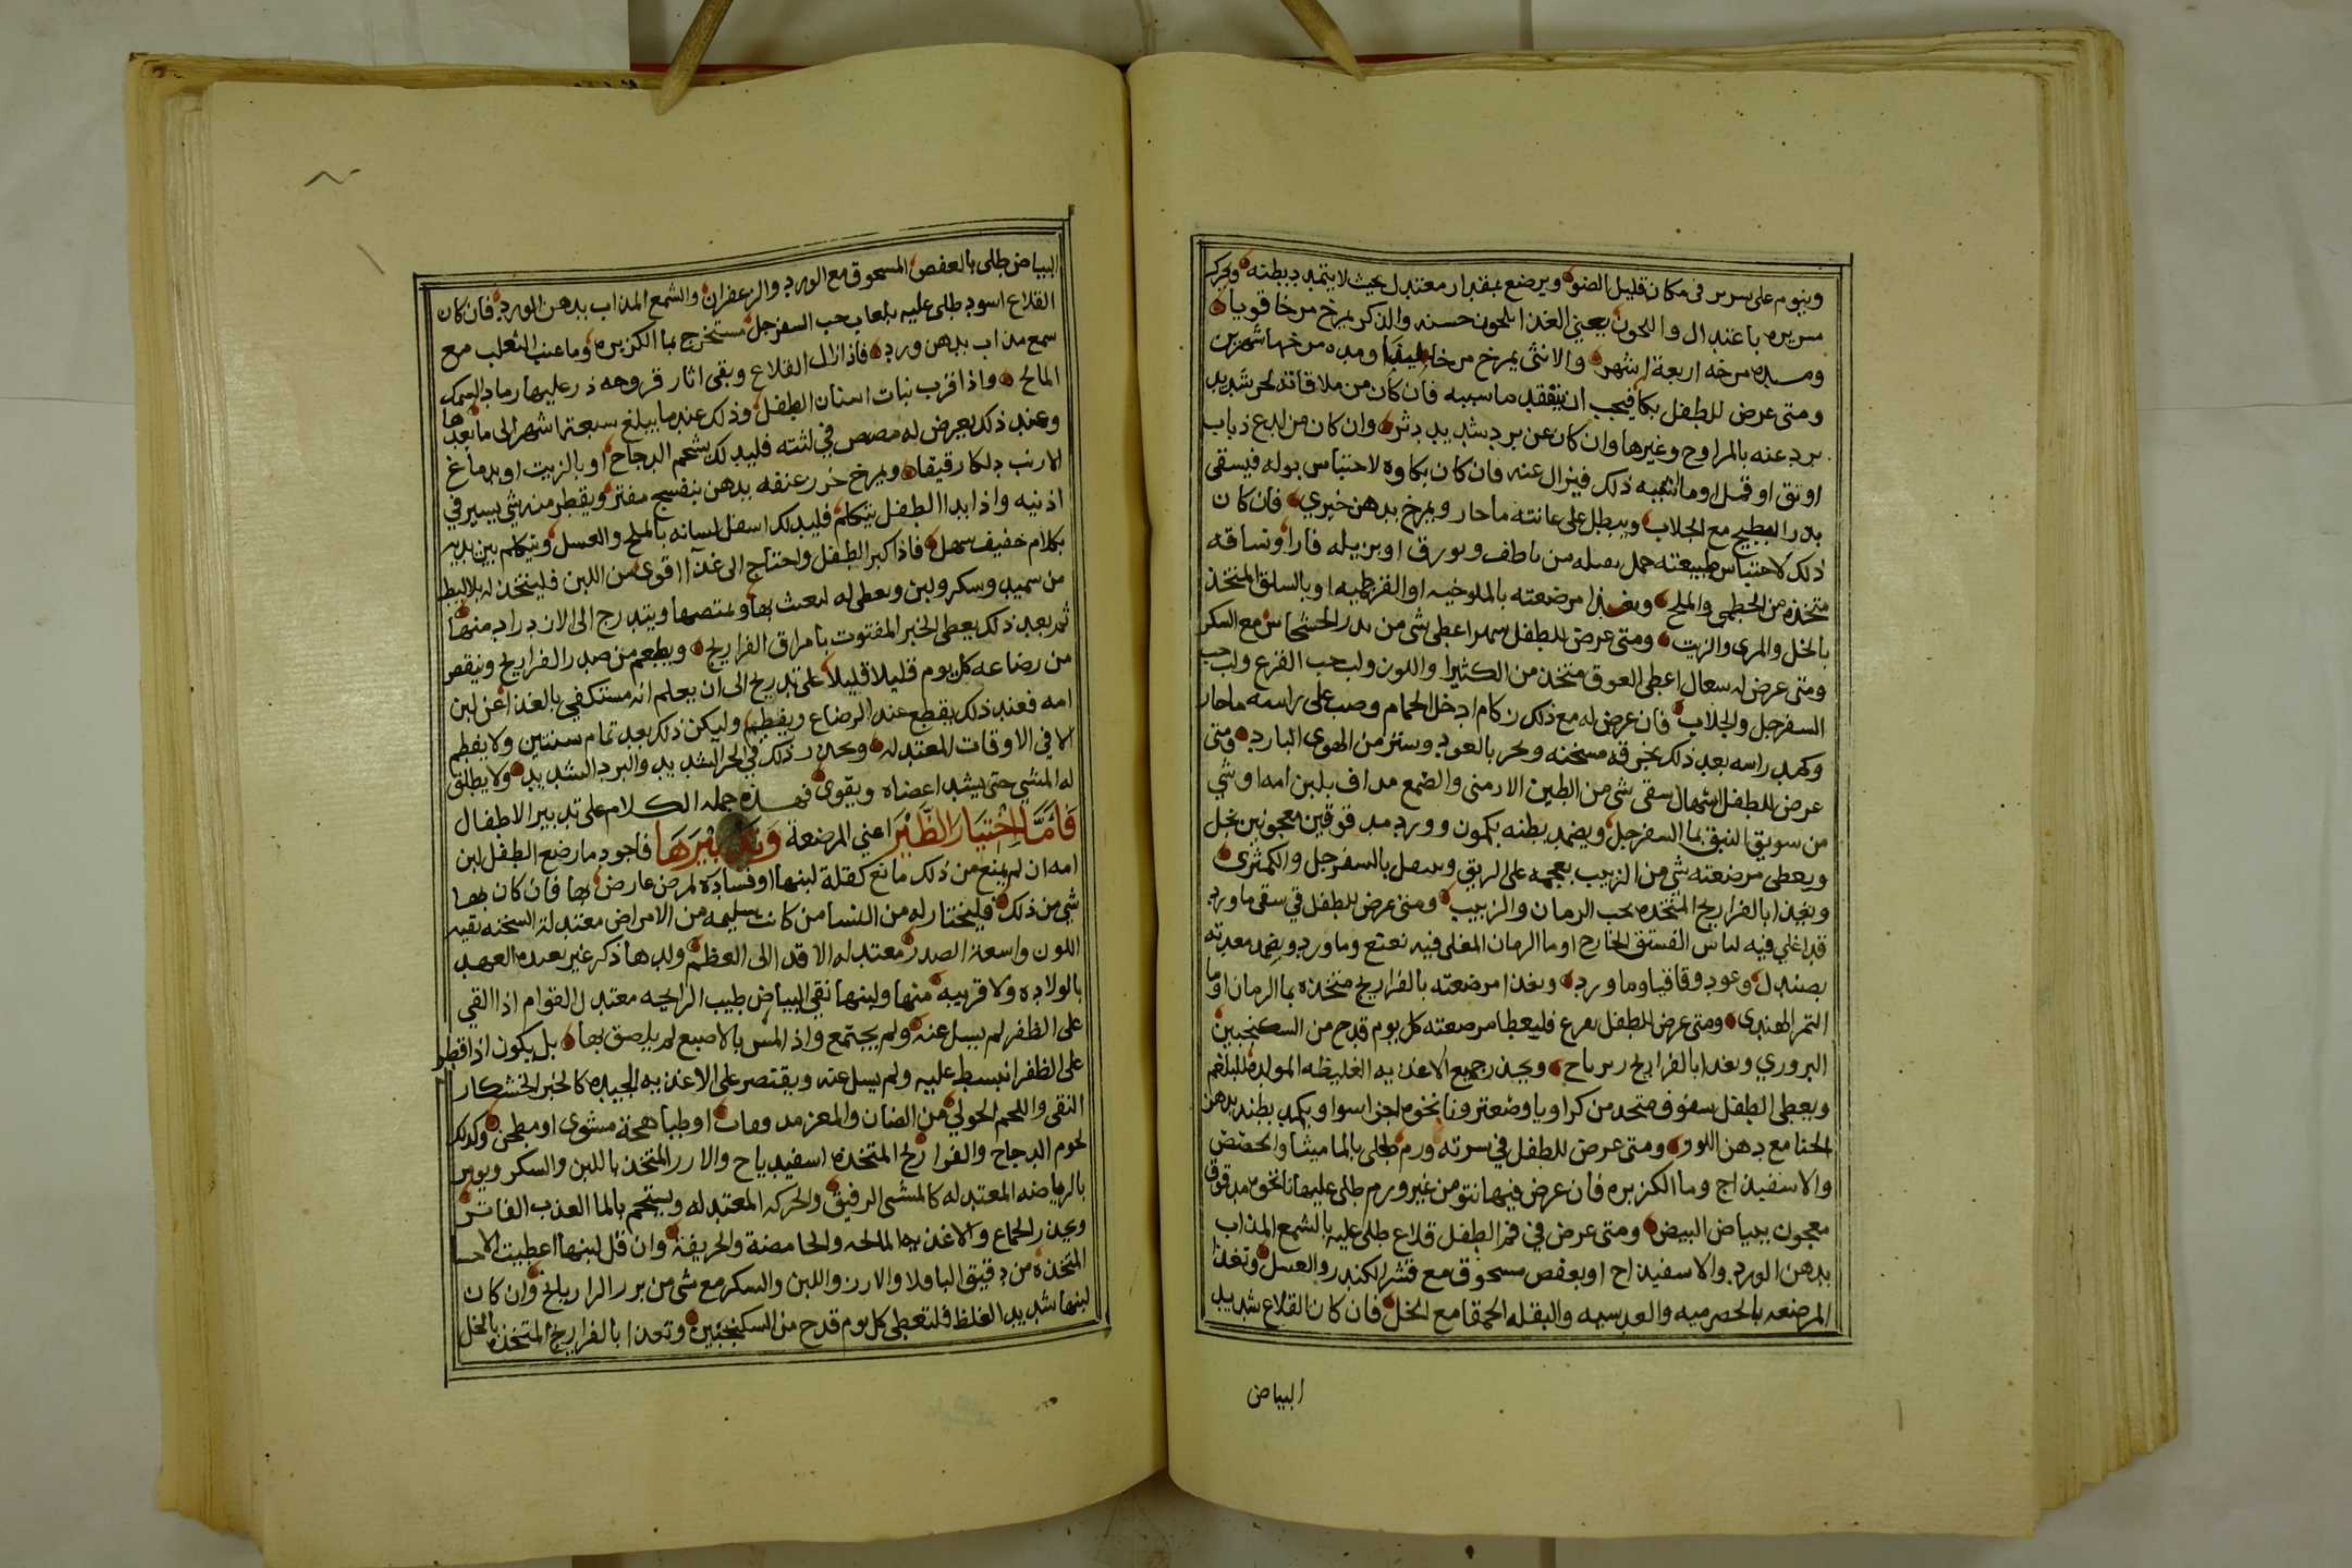 وينوم على سرير فى مكان قليل الضوء ويرضع بمقدار معتدل بحيث لا يتمدد بطنه ويحرك
سريره باعتدال والحون يعني الغذا بلحون حسنه والذكر يمرخ مرخا قويا
ومده مرخه اربعة اشهر والانثى يمرخ مرخا ليفا ومده مرخها شهرين
ومتى عرض للطفل بكا فيجب ان يتفقد ما سببه فان كان من ملاقاته لحر شديد
برد عنه بالمراوح وغيرها وان كان عن برد شديد دثر وان كان من لدع ذباب
او بق او قمل او ما اشبه ذلك فيزال عنه فان كان بكاوه لاحتباس بوله فيسقى
بدر البطيخ مع الجلاب ويبطل على عانته ما حار ويمرخ بدهن خيري فان كان
ذلك لاحتباس طبيعته حمل بصله من ناطف وبورق او بزبله فارا وتساقه
متخذه من الخطمى والملح ويغذا مرضعته بالملوخيه او القرطميه او بالسلق المتخذ
بالخل والمرى والزيت ومتى عرض للطفل سهرا اعطى شى من بدر الخشخاش مع السكر
ومتى عرض له سعال اعطى العوق متخذ من الكثيرا واللون ولب حب القرع ولب حب
السفرجل والجلاب فان عرض له مع ذلك زكام ادخل الحمام وصب على راسه ما حار
وكمد راسه بعد ذلك بخرقه مسخنه وبخر بالعود وستر من الهوى البارد ومتى
عرض للطفل اسهال سقى شى من الطين الارمنى والصمغ مداف بلبن امه او شي
من سويق النبق بما السفرجل ويضمد بطنه بكمون وورد مدقوقين معجونين بخل
ويعطى مرضعته شي من الزبيب بعجمه على الريق وسفل بالسفرجل والكمثرى
ويغذا بالفراريج المتخذه بحب الرمان والزبيب ومتى عرض للطفل قي سقى ما ورد
قد اغلي فيه لباس الفستق الخارج او ما الرمان المغلى فيه نعنع وما ورد ويضمد معدته
بصندل وعود وقاقيا وما ورد ويغذا مرضعته بالفراريج متخذه بما الرمان او ما
التمر الهندى ومتى عرض للطفل فواق فليعطا مرضعته كل يوم قدح من السكنجبين
البزوري وتغذا بالفراريج زيرباج ويحذر جميع الاغذيه الغليظه المولده للبلغم
ويعطى الطفل سفوف متخذ من كراويا وصعتر ونانخوه اجزا سوا ويكمد بطنه بدهن
الحنا مع دهن اللوز ومتى عرض للطفل في سرته ورم طلى بالماميثا والحضض
والاسفيذاج وما الكزبره فان عرض فيها نتو من غير ورم طلى عليها نانخوه مدقوق
معجون ببياض البيض ومتى عرض في فم الطفل قلاع طلى عليه بالشمع المذاب
بدهن الورد والاسفيذاج او بعفص مسحوق مع قشر الكندر والعسل وتغذا
المرضعه بالحصرميه والعدسيه والبقله الحمقا مع الخل فان كان القلاع شديد
البياض
البياض طلى بالعفص المسحوق مع الورد والزعفران والشمع المذاب بدهن الورد فان كان
القلاع اسود طلى عليه بلعاب حب السفرجل مستخرج بما الكزبره وما عنب الثعلب مع
سمع مذاب بدهن ورد فاذا زال القلاع وبقى اثار قروحه ذر عليها رماد السمك
المالح واذا قرب نبات اسنان الطفل وذلك عند ما يبلغ سبعة اشهر الى ما بعدها
وعند ذلك يعرض له مصص في لثته فليدلك بشحم الدجاج او بالزيت او بدماغ
الارنب دلكا رقيقا ويمرخ خرز عنقه بدهن بنفسج مفتر ويقطر منه شي يسير في
اذنيه واذا بدا الطفل يتكلم فليدلك اسفل لسانه بالملح والعسل ويتكلم بين يديه
بكلام خفيف سهل فاذا كبر الطفل واحتاج الى غذآ اقوى من اللبن فليتخذ له بلاليط
من سميد وسكر ولبن ويعطى له لعبث بها ويمتصها ويتدرج الى الازدراد منها
ثم بعد ذلك يعطى الخبز المفتوت بامراق الفراريج ويطعم من صدر الفراريج وينقص
من رضاعه كل يوم قليلا قليلا على تدريج الى ان يعلم انه مستكفي بالغذا عن لبن
امه فعند ذلك يقطع عنه الرضاع ويفطم وليكن ذلك بعد تمام سنتين ولا يفطم
الا في الاوقات المعتدله ويحذر ذلك في الحر الشديد والبرد الشديد ولا يطلق
له المشي حتى يشد اعضاه ويقوى فهذه جمله الكلام على تدبير الاطفال
فَأَمَّا اخْتِيَار الظِّئْر اعني المرضعة وَتَدْبِيْرَهَا فاجود ما رضع الطفل لبن
امه ان لم يمنع من ذلك مانع كقلة لبنها او فساده لمرض عارض بها فان كان بها
شي من ذلك فليختار له من النسا من كانت سليمه من الامراض معتدلة السخنه نقيه
اللون واسعة الصدر معتدله الاقدا الى العظم ولدها ذكر غير بعيده العهد
بالولاده ولا قريبه منها ولبنها نقي البياض طيب الرايحه معتدل القوام اذا القي
على الظفر لم يسل عنه ولم يجتمع واذا المس بالاصبع لم يلصق بها بل يكون اذا قطر
على الظفر انبسط عليه ولم يسل عنه ويقتصر على الاغذيه الجيده كالخبز الخشكار
النقى واللحم الحولي من الضان والمعز مدقوقات او طباهجة مشوى او مطجن وكذلك
لحوم الدجاج والفراريج المتخذه اسفيدباج والارز المتخذ باللبن والسكر ويومر
بالرياضه المعتدله كالمشى الرفيق والحركه المعتدله ويستحم بالما العذب الفاتر
ويحذر الجماع والاغذيه المالحه والحامضة والحريفة وان قل لبنها اعطيت الاحسا
المتخذه من دقيق الباقلا والارز واللبن والسكر مع شى من بزر الرازيانج وان كان
لبنها شديد الغلظ فلتعطى كل يوم قدح من السكنجبين وتغذا بالفراريج المتخذه بالخل